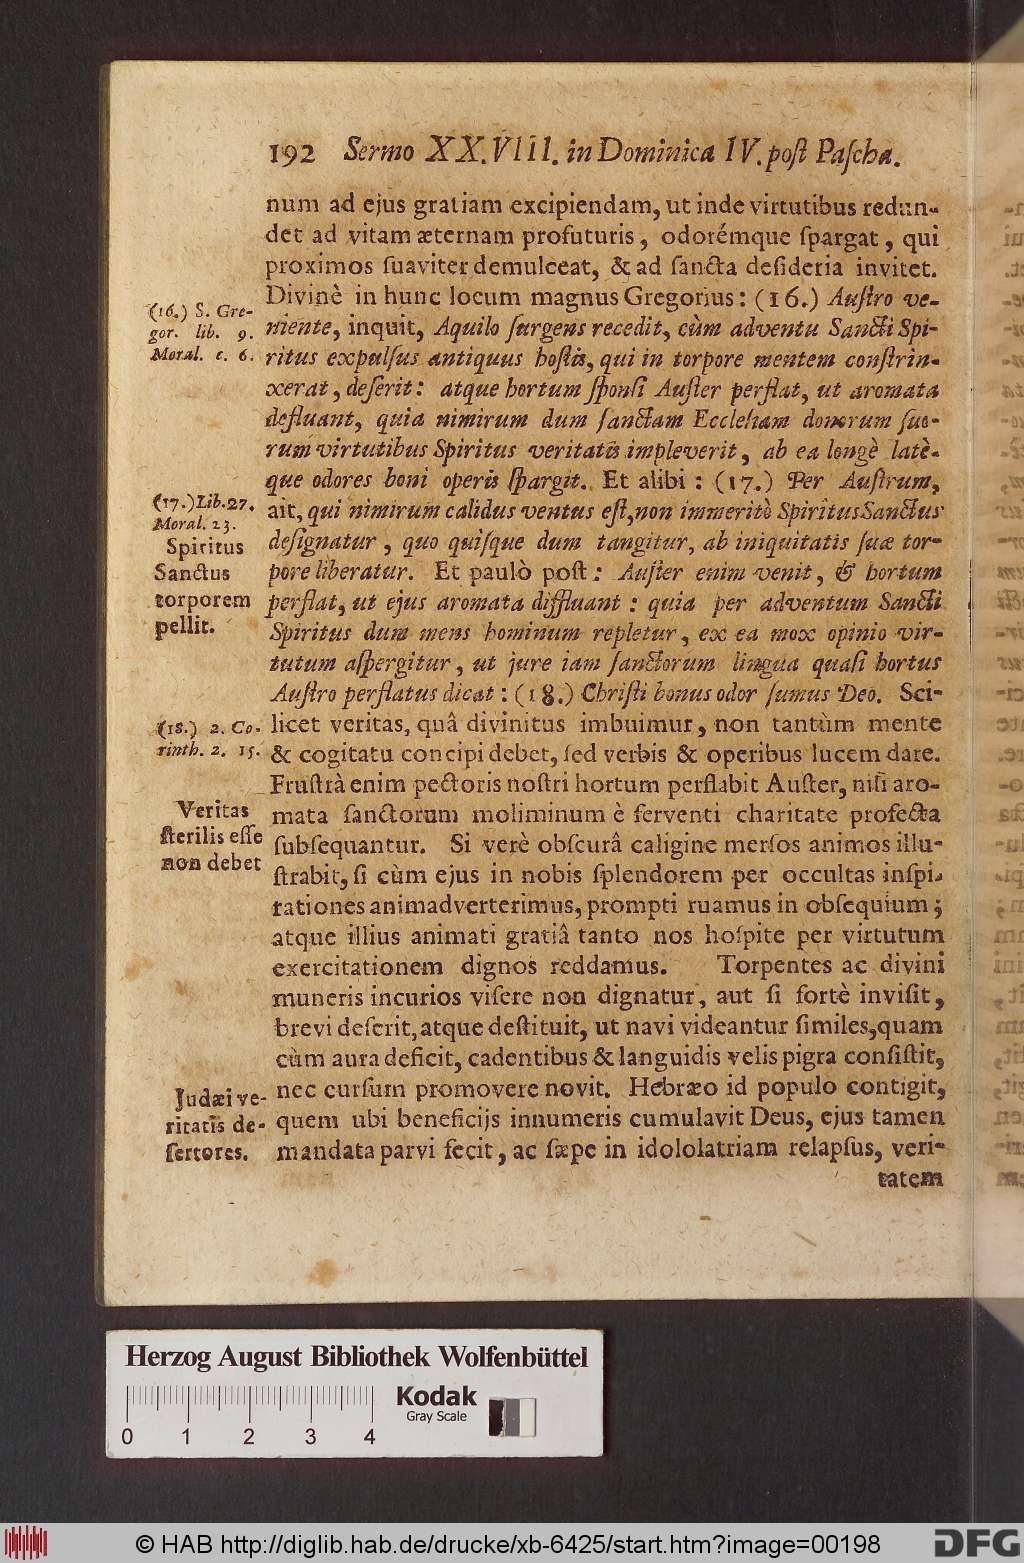 192 Sermo XX.VIII. in Dominica IV. poſt Paſcha.
num ad ejus gratiam excipiendam, ut inde virtutibus redun-
det ad vitam æternam profuturis, odorémque ſpargat, qui
proximos ſuaviter demulceat, & ad ſancta deſideria invitet.
Divinè in hunc locum magnus Gregorius: (16.) Auſtro ve-
niente, inquit, Aquilo ſurgens recedit, cùm adventu Sancti Spi-
ritus expulſus antiquus hoſtis, qui in torpore mentem conſtrin-
xerat, deſerit: atque hortum ſponſi Auſter perflat, ut aromata
defluant, quia nimirum dum ſanctam Eccleſiam donorum ſuo-
rum virtutibus Spiritus veritatis impleverit, ab ea longè latè-
que odores boni operis ſpargit. Et alibi: (17.) Per Auſtrum,
ait, qui nimirum calidus ventus eſt, non immeritò Spiritus Sanctus
deſignatur, quo quiſque dum tangitur, ab iniquitatis ſuæ tor-
pore liberatur. Et paulò poſt: Auſter enim venit, & hortum
perflat, ut ejus aromata diffluant: quia per adventum Sancti
Spiritus dum mens hominum repletur, ex ea mox opinio vir-
tutum aſpergitur, ut jure iam ſanctorum lingua quaſi hortus
Auſtro perflatus dicat: (18.) Chriſti bonus odor ſumus Deo. Sci-
licet veritas, quâ divinitus imbuimur, non tantùm mente
& cogitatu concipi debet, ſed verbis & operibus lucem dare.
Fruſtrà enim pectoris noſtri hortum perflabit Auſter, niſi aro-
mata ſanctorum moliminum è ferventi charitate profecta
ſubſequantur. Si verè obſcurâ caligine merſos animos illu-
ſtrabit, ſi cùm ejus in nobis ſplendorem per occultas inſpi-
rationes animadverterimus, prompti ruamus in obſequium;
atque illius animati gratiâ tanto nos hoſpite per virtutum
exercitationem dignos reddamus. Torpentes ac divini
muneris incurios viſere non dignatur, aut ſi fortè inviſit,
brevi deſerit, atque deſtituit, ut navi videantur ſimiles, quam
cùm aura deficit, cadentibus & languidis velis pigra conſiſtit,
nec curſum promovere novit. Hebræo id populo contigit,
quem ubi beneficijs innumeris cumulavit Deus, ejus tamen
mandata parvi fecit, ac ſæpe in idololatriam relapſus, veri-
tatem
(16.) S. Gre-
gor. lib. 9.
Moral. c. 6.
(17.) Lib. 27.
Moral. 23.
Spiritus
Sanctus
torporem
pellit.
(18.) 2. Co-
rinth. 2. 15.
Veritas
ſterilis eſſe
non debet
Judæi ve-
ritatis de-
ſertores.
Herzog August Bibliothek Wolfenbüttel
Kodak
Gray Scale
0 1 2 3 4
© HAB http://diglib.hab.de/drucke/xb-6425/start.htm?image=00198
DFG